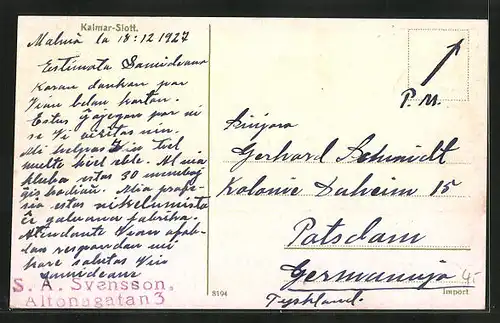 Kalmar-Slott.
Malmö la 18:12 1927
Estimata Samideano
Koran dankon por
Vian belan karton.
Estus ĝojegon por mi
se Vi
Mi helpas Vin tiel
multe kiel eble. Al nia
klubo estas 30 membroj
ĝis hodiaŭ. Mia profe-
sio estas nikelumisto
ĉe galvana fabriko.
Atendante Vian apal-
dan respondon mi
kore salutas Vin
Samideane
S. A. Svensson,
Altonagatan 3
P. M.
Sinjoro
Gerhard Schmidt
Kolonie Daheim 15
Potsdam
Germanujo
Tyskland.
8194
Import